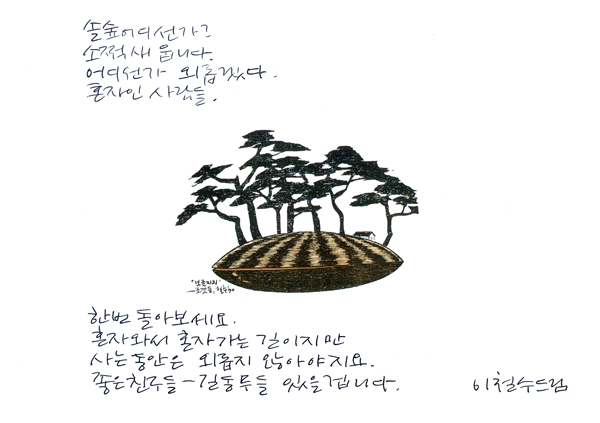 솔숲어디선가
소쩍새 웁니다.
어디선가 외롭겠다.
혼자인 사람들.
한번 돌아보세요.
혼자와서 혼자가는 길이지만
사는동안은 외롭지 않아야지요.
좋은친구들-길동무들 있을겁니다.
이철수드림